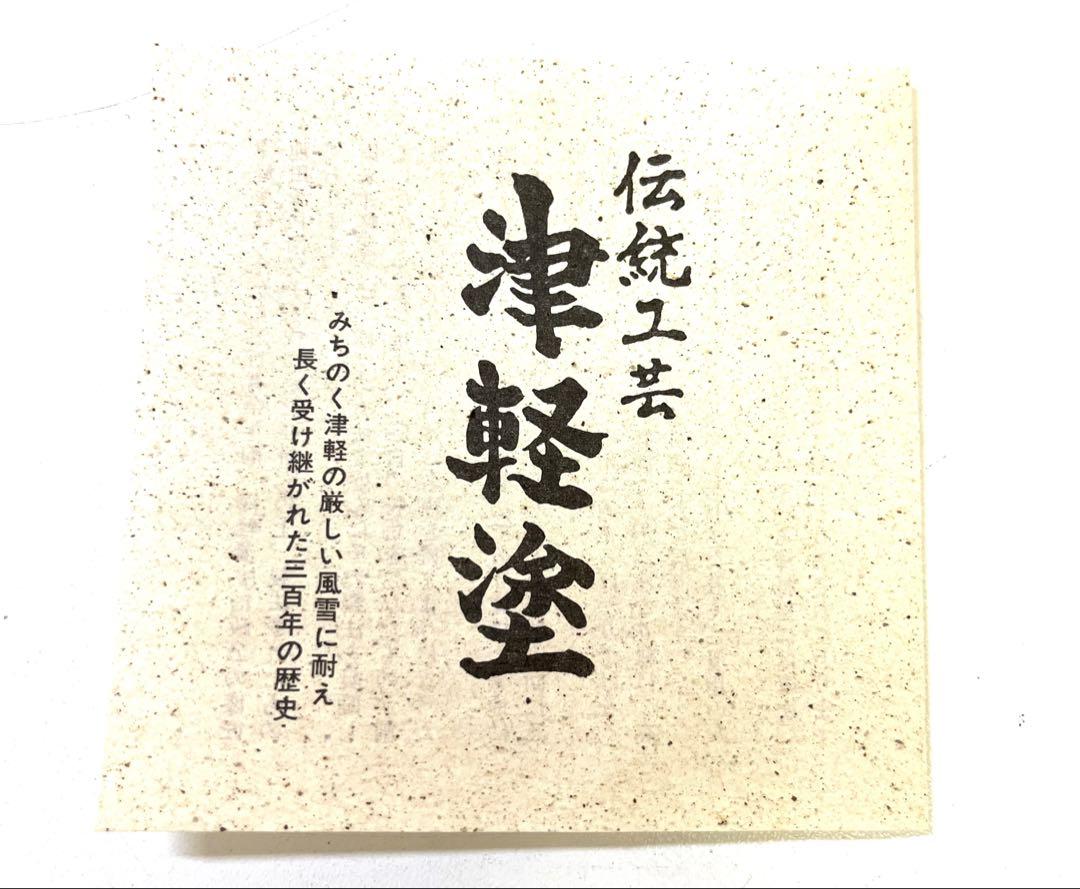 伝統工芸
津軽塗
みちのく津軽の厳しい風雪に耐え
長く受け継がれた三百年の歴史